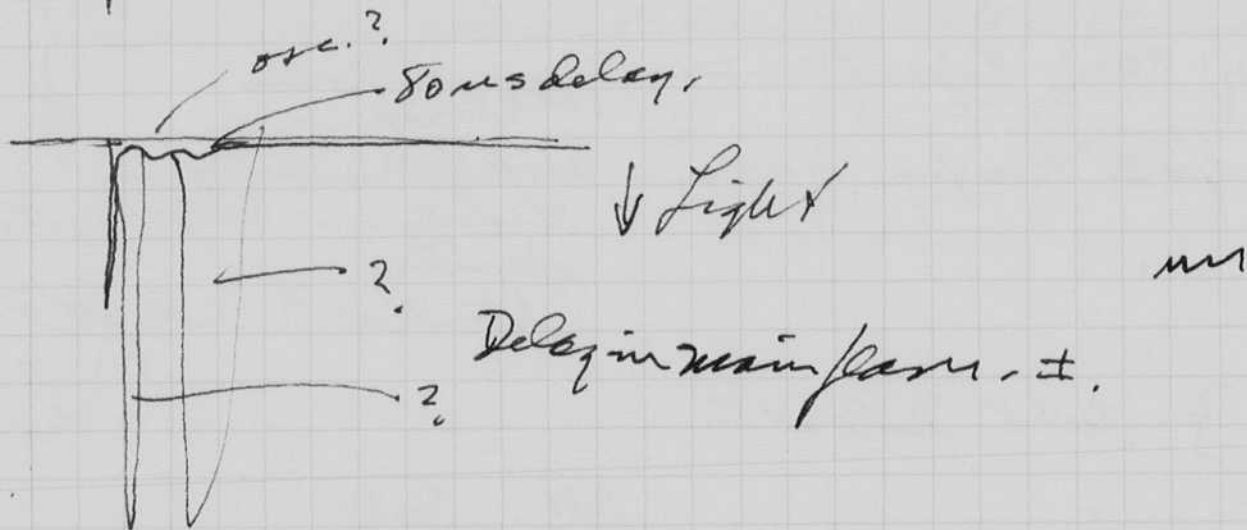 osc.?
delay.
↓ Light
?.
Delay in main flash. ±.
?.